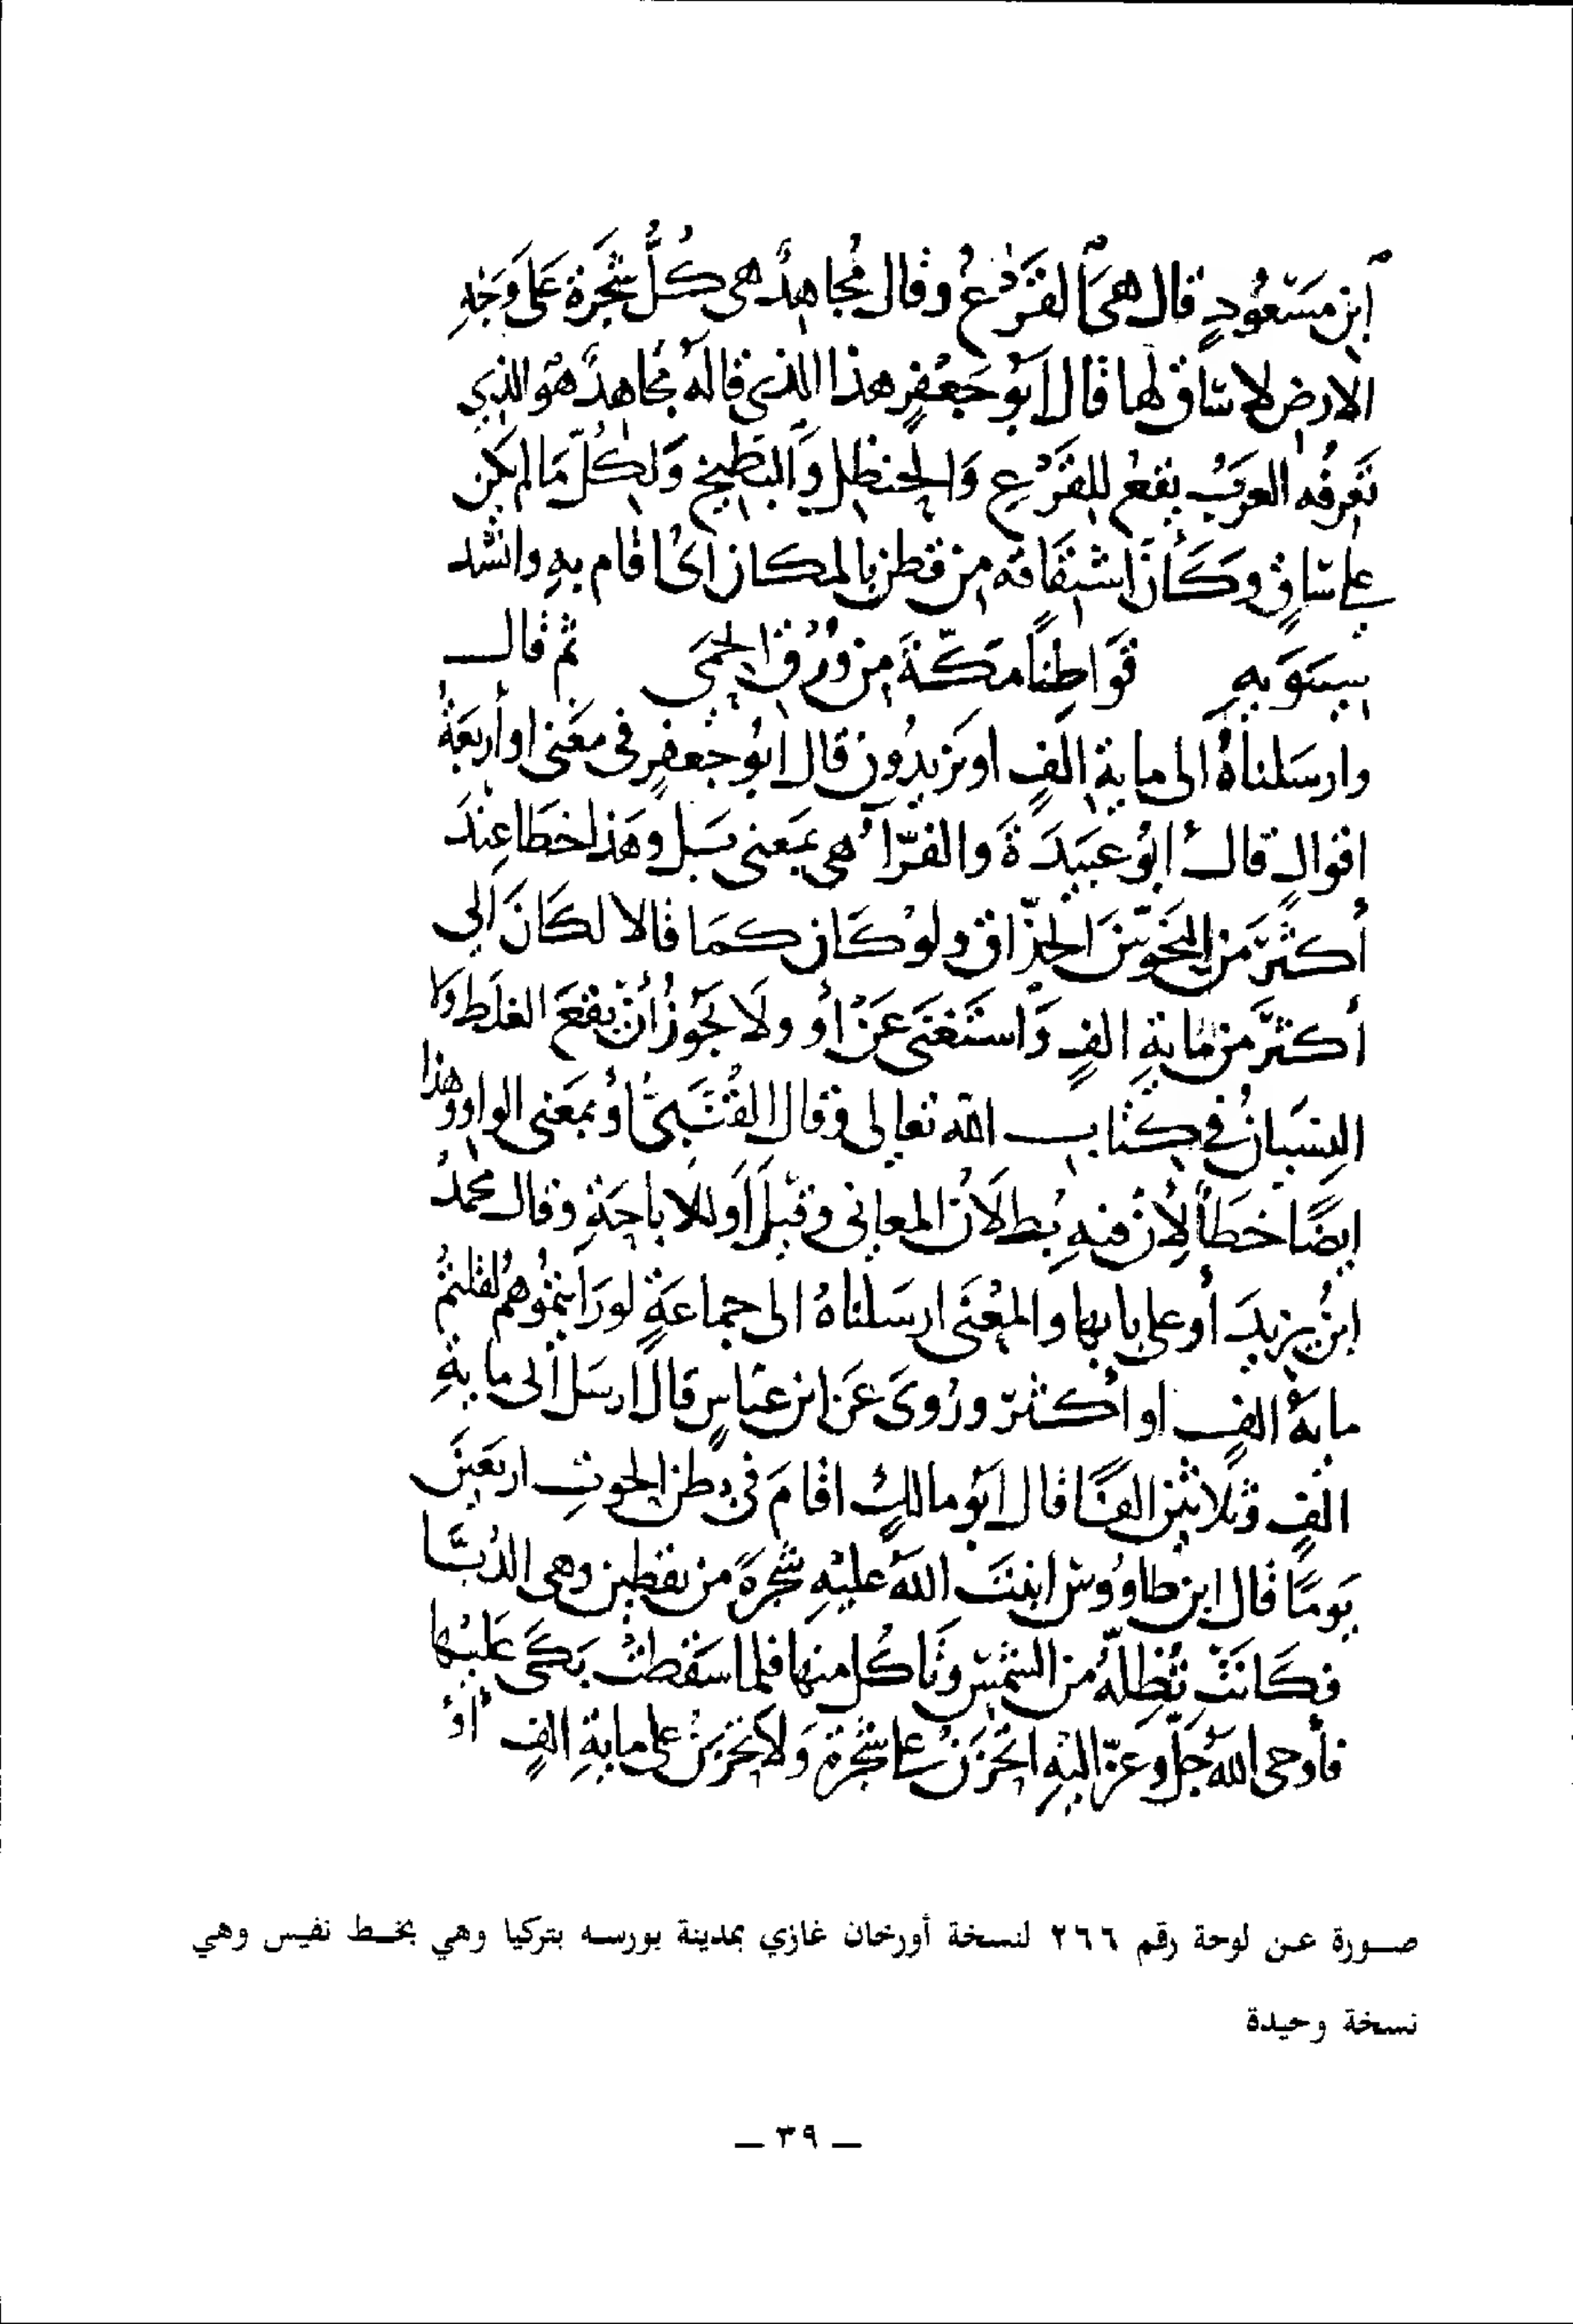 ابن مَسْعُودٍ قال هى القَرْعُ وقال مُجاهِدٌ هى كُلُّ شَجَرة على وَجْهِ
الارض لا ساق لها قال ابو جَعْفرٍ هذا الذي قالهُ مجاهدٌ هُوَ الذي
تَعْرِفُه العَربُ يَقَعُ للقَرْعِ وَالحَنظَلِ وَالبِطِّيخِ وَلِكُلّ مَا لم يكن
على سَاقٍ وكَأَنَّ اشتِقَاقَه مِن قَطَن بالمكان اى اقام بهِ وانشد
سيبَوَيهِ قَوَاطِنًا مكَّةَ مِن وُرْقِ الحَمَى ثم قال
وارسَلناهُ الى مايةِ الفٍ او يَزيدُون قال ابُو جَعفرٍ فى مَعْنى او أربَعَةُ
اقوالٍ قال ابُو عبَيدَةَ والفرّآءُ هى بمَعنى بَل وهَذا خطَا عِندَ
أكثَرِ النَحَويّينَ الحُذّاق ولو كَان كمَا قالا لكَانَ الى
أكثَرَ من مايةِ الفٍ وَاستَغنَى عَنْ أو ولَا يَجُوزُ أنْ يَقعَ الغلَط ولا
النِسيَانُ فى كتابِ الله تعالى وقال القُتَبِىُّ أوْ بمَعنى الواو وهذا
ايضًا خطَأ لِأنّ فيهِ بُطلَانَ المعانى وقيلَ أو للاباحَةِ وقال محمدُ
ابنُ يزيدَ أو على بابها والمعْنَى ارسَلناهُ الى جماعَةٍ لو رَايتُمُوهُم لقلتُم
مايةُ الفٍ او اكثر ورُوِىَ عَن ابن عبّاسٍ قال ارسل الى مايةِ
الفٍ وثلاثين الفًا قال ابو مالكٍ اقامَ فى بطن الحوتِ اربَعينَ
يَومًا قال ابن طاووس انبتَ اللهُ عليْهِ شَجرةً من يقطين وهى الدُبّا
فكَانَتْ تُظِلُّهُ من الشمس وياكُل منها فلما سقَطتْ بَكَى عَليْها
فأوحى اللهُ جلّ وعَزّ اليْهِ اتحزَنُ على شَجرة وَلا تحزنُ على مايةِ الفٍ أوْ
صورة عن لوحة رقم ٢٦٦ لنسخة أورخان غازي بمدينة بورسه بتركيا وهي بخط نفيس وهي
نسخة وحيدة
— ٣٩ —